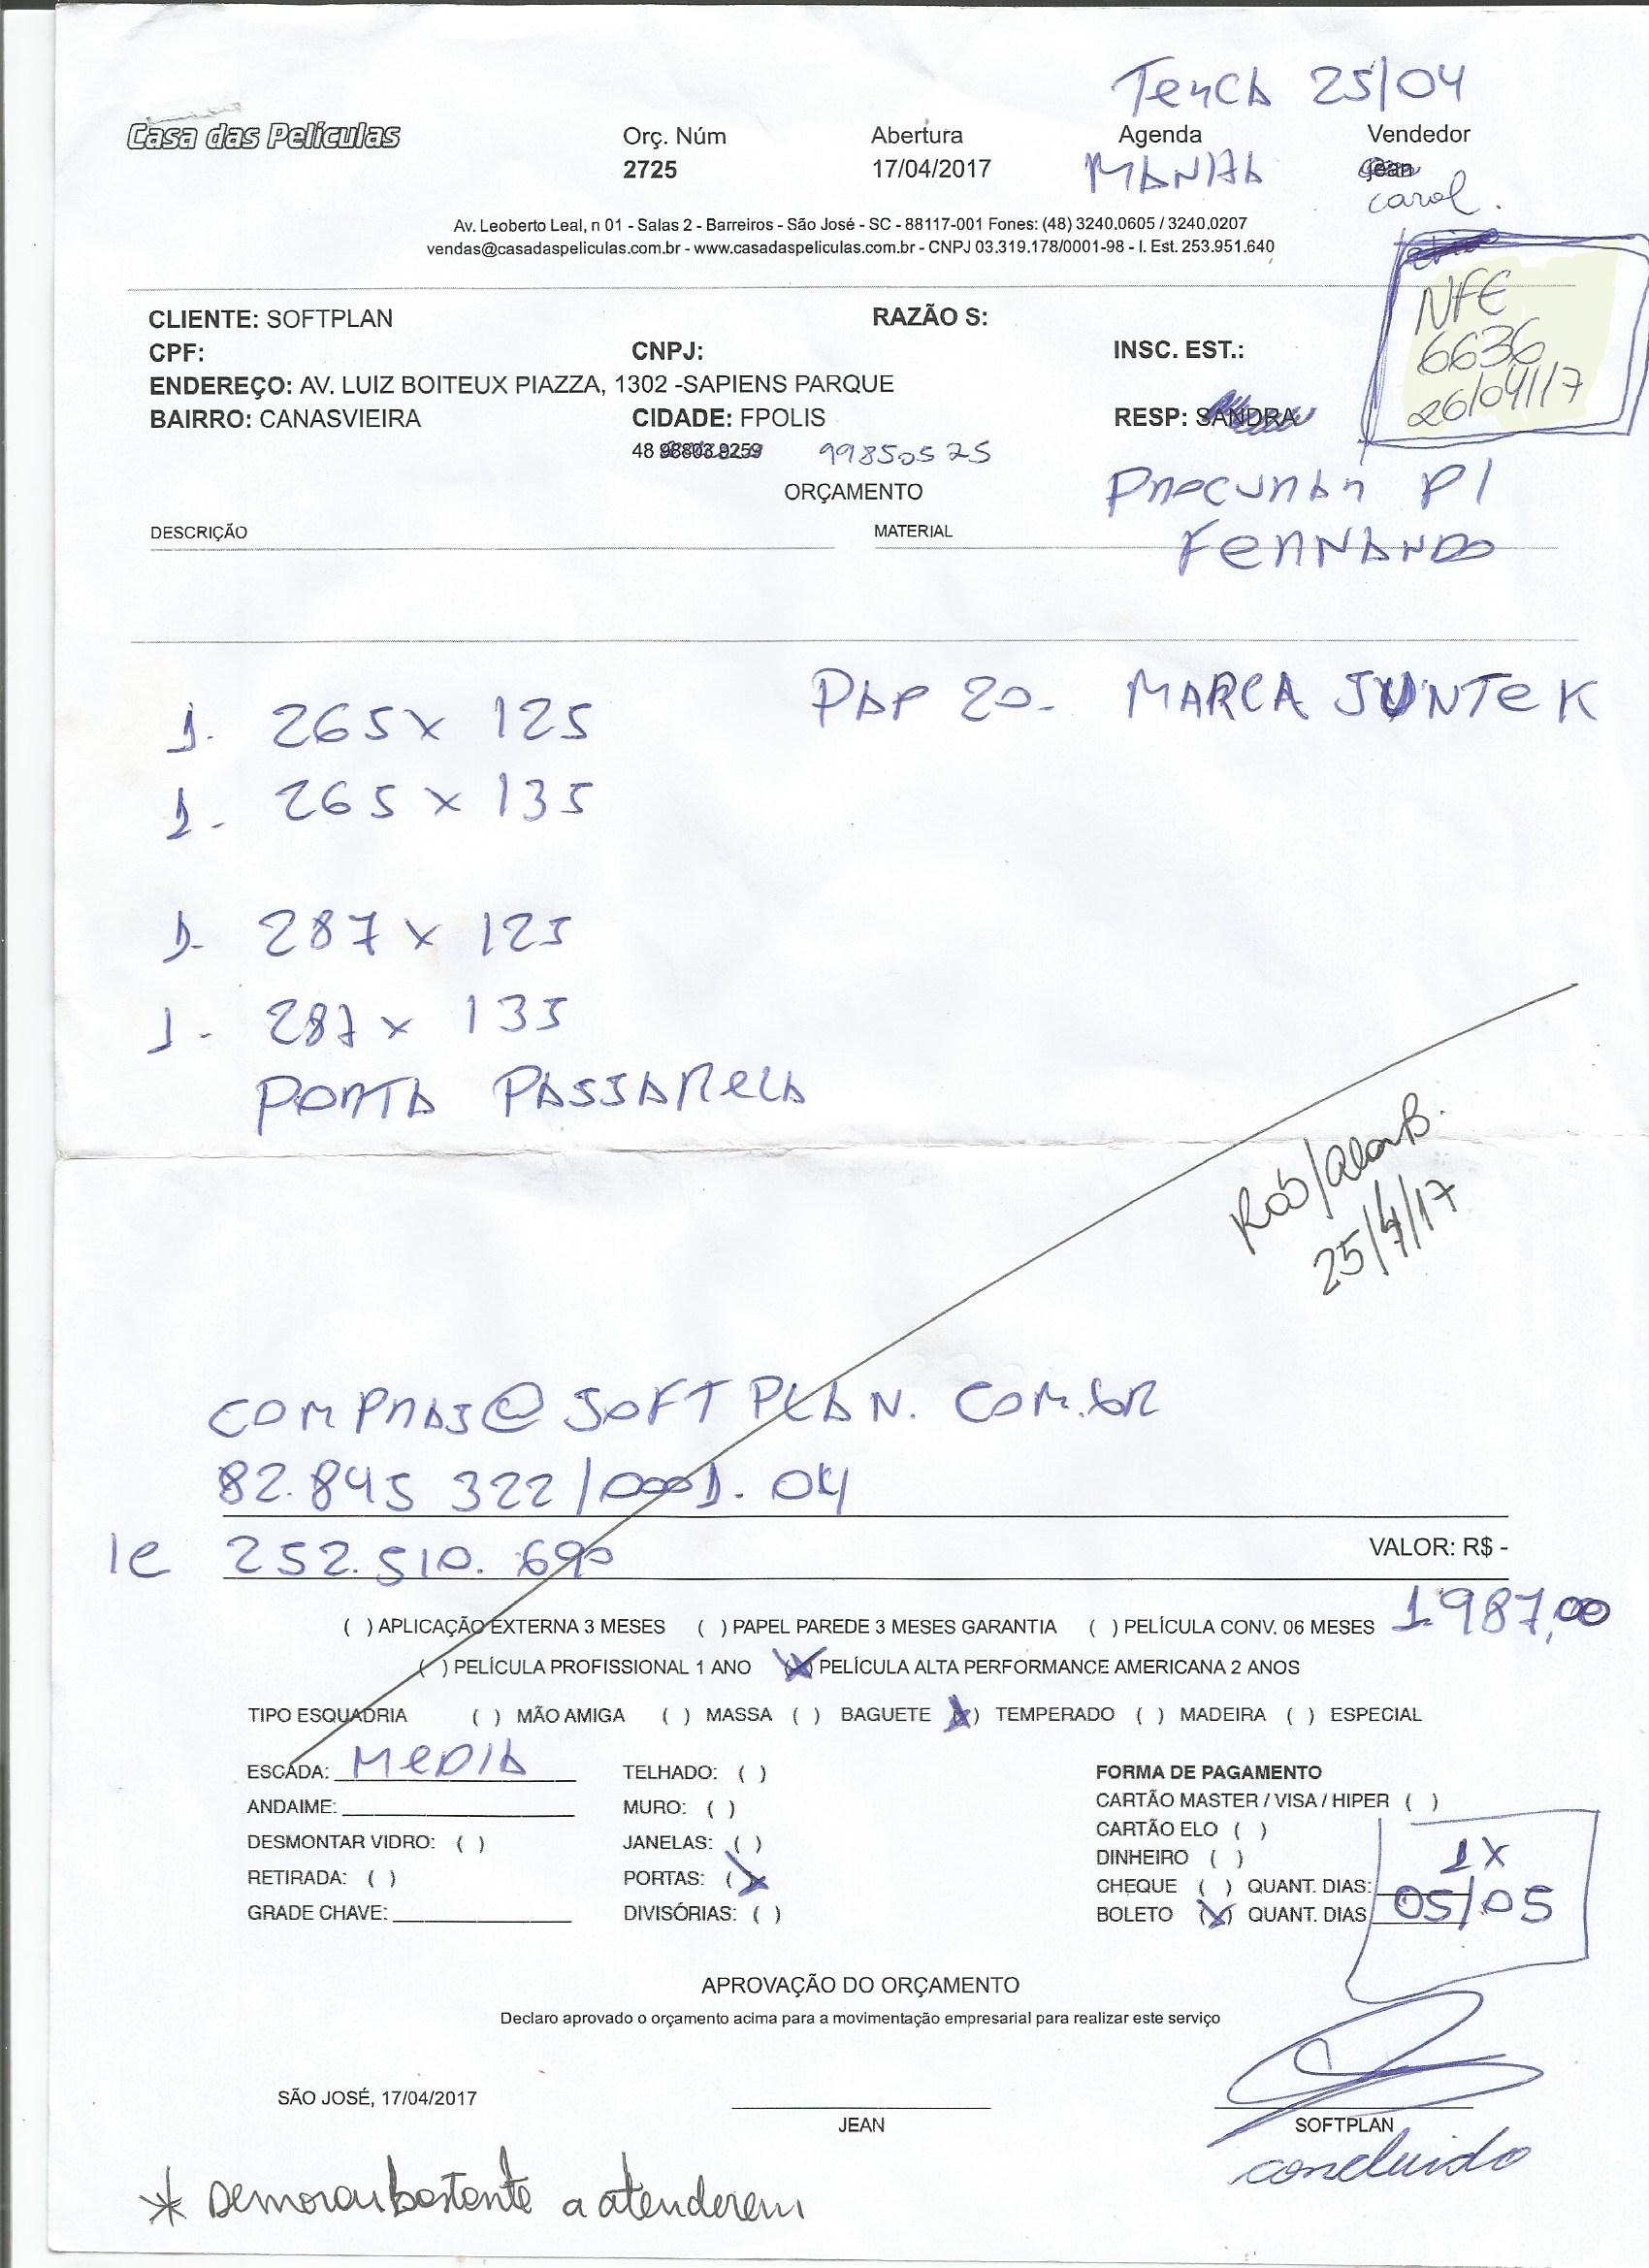 Terca 25/04
Casa das Películas
Orç. Núm Abertura Agenda Vendedor
2725 17/04/2017 MANHA jean
carol.
Av. Leoberto Leal, n 01 - Salas 2 - Barreiros - São José - SC - 88117-001 Fones: (48) 3240.0605 / 3240.0207
vendas@casadaspeliculas.com.br - www.casadaspeliculas.com.br - CNPJ 03.319.178/0001-98 - I. Est. 253.951.640
NFE
6636
26/04/17
CLIENTE: SOFTPLAN RAZÃO S:
CPF: CNPJ: INSC. EST.:
ENDEREÇO: AV. LUIZ BOITEUX PIAZZA, 1302 -SAPIENS PARQUE
BAIRRO: CANASVIEIRA CIDADE: FPOLIS RESP: SANDRA
48 98803 9259 99850525
Procurar P/
Fernando
ORÇAMENTO
DESCRIÇÃO MATERIAL
1. 265 x 125 PAP 20- MARCA JUNTEK
1. 265 x 135
1- 287 x 125
1- 287 x 135
PORTA PASSARELA
Rob/Alan B.
25/4/17
COMPRAS@SOFTPLAN.COM.BR
82.845 322/0001.04
Ie 252.510.690 VALOR: R$ -
1.987,00
( ) APLICAÇÃO EXTERNA 3 MESES ( ) PAPEL PAREDE 3 MESES GARANTIA ( ) PELÍCULA CONV. 06 MESES
( ) PELÍCULA PROFISSIONAL 1 ANO (X) PELÍCULA ALTA PERFORMANCE AMERICANA 2 ANOS
TIPO ESQUADRIA ( ) MÃO AMIGA ( ) MASSA ( ) BAGUETE (X) TEMPERADO ( ) MADEIRA ( ) ESPECIAL
ESCADA: MEDIA TELHADO: ( ) FORMA DE PAGAMENTO
ANDAIME: MURO: ( ) CARTÃO MASTER / VISA / HIPER ( )
DESMONTAR VIDRO: ( ) JANELAS: ( ) CARTÃO ELO ( )
RETIRADA: ( ) PORTAS: (X) DINHEIRO ( )
GRADE CHAVE: DIVISÓRIAS: ( ) CHEQUE ( ) QUANT. DIAS: 1X
BOLETO (X) QUANT. DIAS 05/05
APROVAÇÃO DO ORÇAMENTO
Declaro aprovado o orçamento acima para a movimentação empresarial para realizar este serviço
SÃO JOSÉ, 17/04/2017
JEAN SOFTPLAN
concluido
* Demorou bastante a atenderem